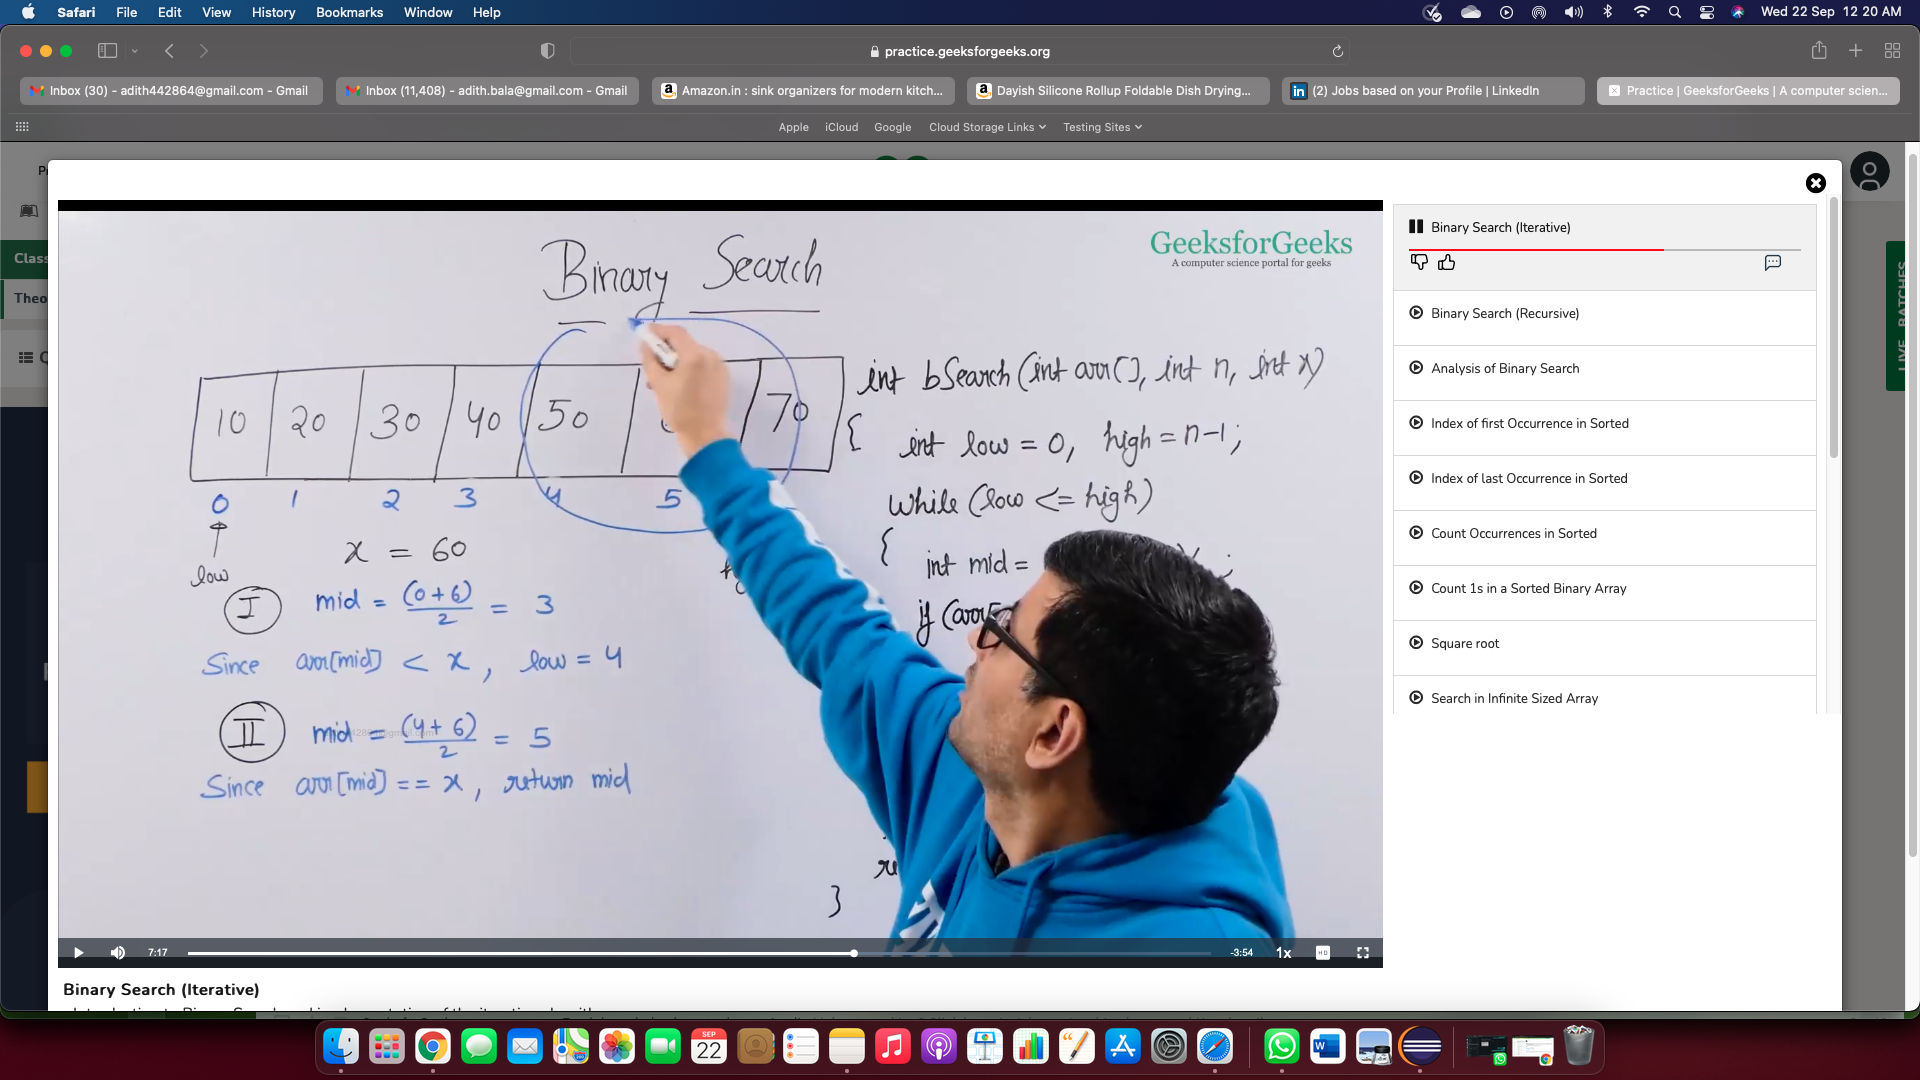 Safari File Edit View History Bookmarks Window Help Wed 22 Sep 12 20 AM
practice.geeksforgeeks.org
Inbox (30) - adith442864@gmail.com - Gmail
Inbox (11,408) - adith.bala@gmail.com - Gmail
Amazon.in : sink organizers for modern kitch...
Dayish Silicone Rollup Foldable Dish Drying...
(2) Jobs based on your Profile | LinkedIn
Practice | GeeksforGeeks | A computer scien...
Apple iCloud Google Cloud Storage Links Testing Sites
Class
Theo
LIVE BATCHES
GeeksforGeeks
A computer science portal for geeks
Binary Search
10 20 30 40 50 70
0 1 2 3 4 5
low
x = 60
I mid = (0+6)/2 = 3
Since arr[mid] < x, low = 4
II mid = (4+6)/2 = 5
Since arr[mid] == x, return mid
int bSearch(int arr[], int n, int x)
{ int low = 0, high = n-1;
while (low <= high)
{ int mid =
if (arr[
}
7:17 -3:54 1x HD
Binary Search (Iterative)
Binary Search (Iterative)
Binary Search (Recursive)
Analysis of Binary Search
Index of first Occurrence in Sorted
Index of last Occurrence in Sorted
Count Occurrences in Sorted
Count 1s in a Sorted Binary Array
Square root
Search in Infinite Sized Array
SEP
22